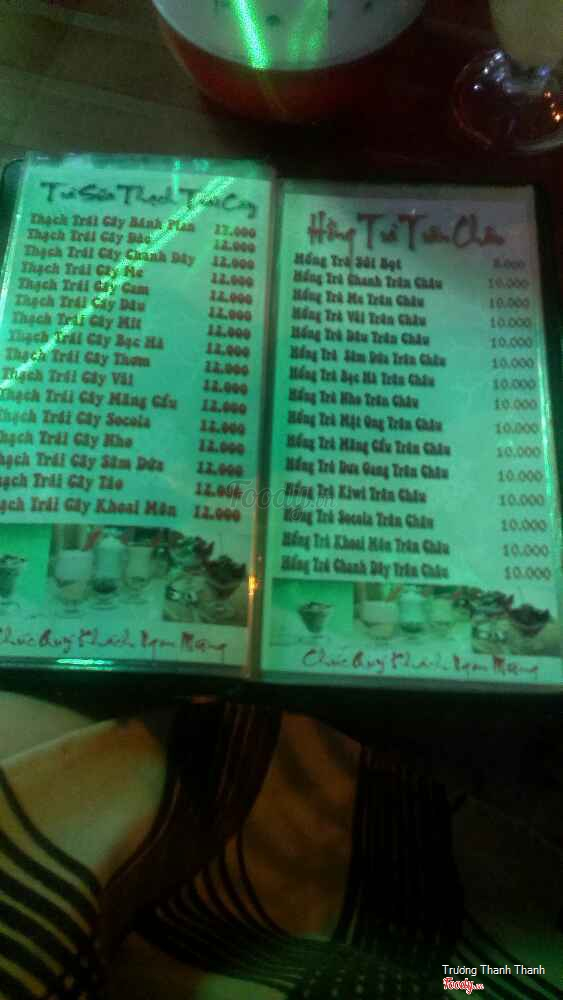 Trà Sữa Thạch Trái Cây
Thạch Trái Cây Bánh Plan 12.000
Thạch Trái Cây Dâc 12.000
Thạch Trái Cây Chanh Dây 12.000
Thạch Trái Cây Me 12.000
Thạch Trái Cây Cam 12.000
Thạch Trái Cây Dâu 12.000
Thạch Trái Cây Mít 12.000
Thạch Trái Cây Bạc Hà 12.000
Thạch Trái Cây Thơm 12.000
Thạch Trái Cây Vải 12.000
Thạch Trái Cây Mãng Cầu 12.000
Thạch Trái Cây Socola 12.000
Thạch Trái Cây Nho 12.000
Thạch Trái Cây Sâm Dứa 12.000
Thạch Trái Cây Táo 12.000
Thạch Trái Cây Khoai Môn 12.000
Chúc Quý Khách Ngon Miệng
Hồng Trà Trân Châu
Hồng Trà Sủi Bọt 8.000
Hồng Trà Chanh Trân Châu 10.000
Hồng Trà Me Trân Châu 10.000
Hồng Trà Vải Trân Châu 10.000
Hồng Trà Dâu Trân Châu 10.000
Hồng Trà Sâm Dứa Trân Châu 10.000
Hồng Trà Bạc Hà Trân Châu 10.000
Hồng Trà Nho Trân Châu 10.000
Hồng Trà Mật Ong Trân Châu 10.000
Hồng Trà Mãng Cầu Trân Châu 10.000
Hồng Trà Dưa Gang Trân Châu 10.000
Hồng Trà Kiwi Trân Châu 10.000
Hồng Trà Socola Trân Châu 10.000
Hồng Trà Khoai Môn Trân Châu 10.000
Hồng Trà Chanh Dây Trân Châu 10.000
Chúc Quý Khách Ngon Miệng
Foody.vn
Trương Thanh Thanh
Foody.vn